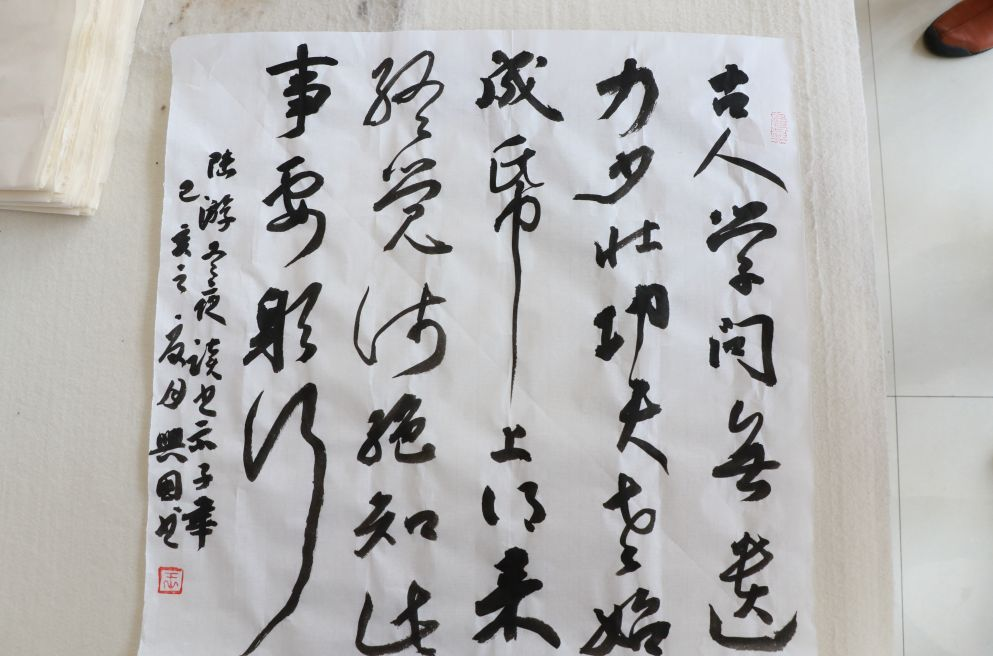 古人学问無遗
力少壮功夫老始
成帋上得来
终觉浅绝知此
事要躬行
陆游冬夜读书示子聿
己亥之夏月興国书